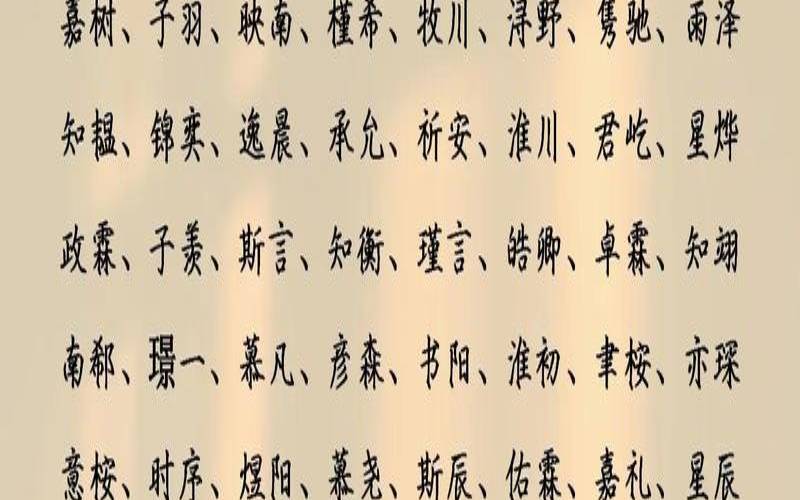 嘉树、子羽、映南、槿希、牧川、浔野、隽驰、雨泽
知韫、锦奕、逸晨、承允、祈安、淮川、君屹、星烨
政霖、子羡、斯言、知衡、瑾言、皓卿、卓霖、知翊
南郗、璟一、慕凡、彦森、书阳、淮初、聿桉、亦琛
意桉、时序、煜阳、慕尧、斯辰、佑霖、嘉礼、星辰